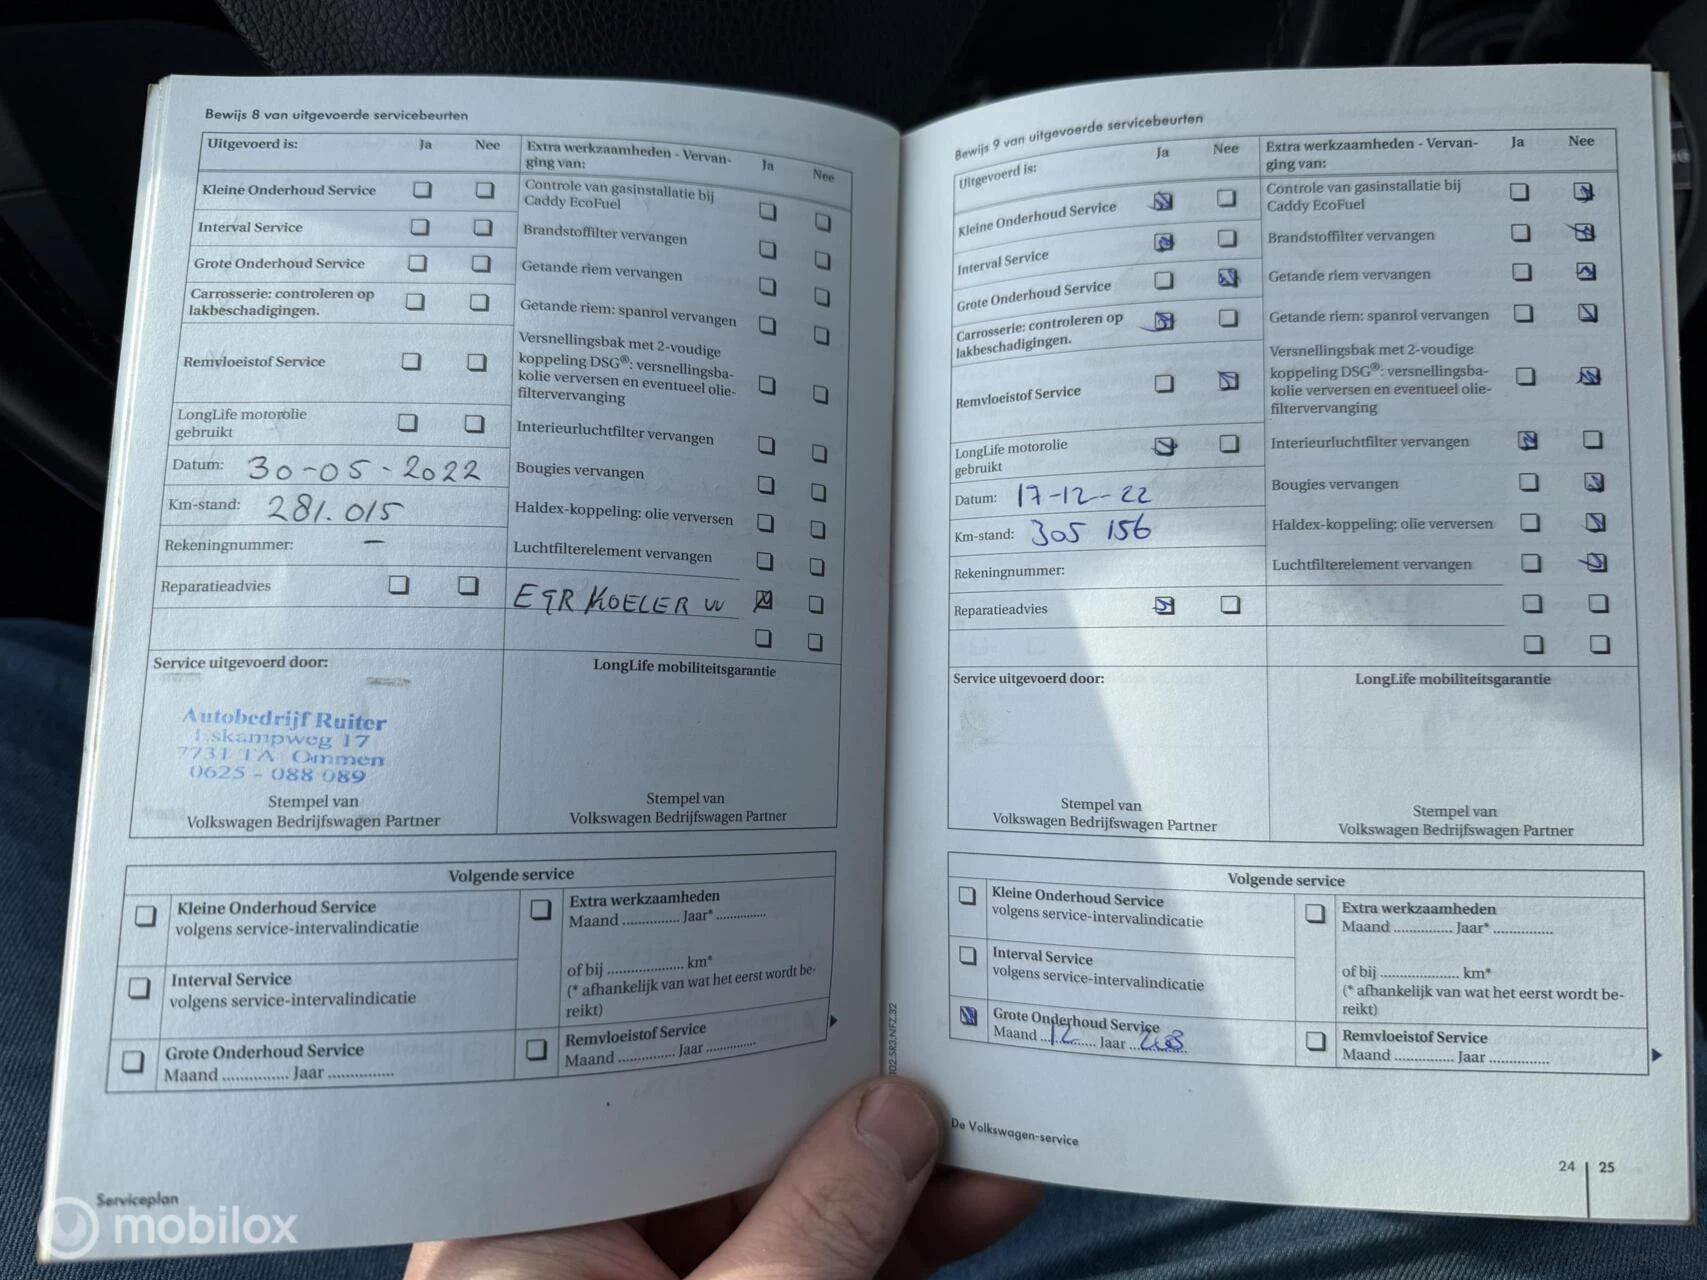 Bewijs 8 van uitgevoerde servicebeurten
Uitgevoerd is: Ja Nee
Kleine Onderhoud Service
Interval Service
Grote Onderhoud Service
Carrosserie: controleren op
lakbeschadigingen.
Remvloeistof Service
LongLife motorolie
gebruikt
Datum: 30-05-2022
Km-stand: 281.015
Rekeningnummer: –
Reparatieadvies
Extra werkzaamheden - Vervan-
ging van: Ja Nee
Controle van gasinstallatie bij
Caddy EcoFuel
Brandstoffilter vervangen
Getande riem vervangen
Getande riem: spanrol vervangen
Versnellingsbak met 2-voudige
koppeling DSG®: versnellingsba-
kolie verversen en eventueel olie-
filtervervanging
Interieurluchtfilter vervangen
Bougies vervangen
Haldex-koppeling: olie verversen
Luchtfilterelement vervangen
EGR KOELER VV
Service uitgevoerd door:
Autobedrijf Ruiter
Eskampweg 17
7731 TA Ommen
0625 - 088 089
Stempel van
Volkswagen Bedrijfswagen Partner
LongLife mobiliteitsgarantie
Stempel van
Volkswagen Bedrijfswagen Partner
Volgende service
Kleine Onderhoud Service
volgens service-intervalindicatie
Interval Service
volgens service-intervalindicatie
Grote Onderhoud Service
Maand ............... Jaar ...............
Extra werkzaamheden
Maand ............... Jaar* ...............
of bij .................... km*
(* afhankelijk van wat het eerst wordt be-
reikt)
Remvloeistof Service
Maand ............... Jaar ...............
Serviceplan
102.5R3.NFZ.32
Bewijs 9 van uitgevoerde servicebeurten
Uitgevoerd is: Ja Nee
Kleine Onderhoud Service
Interval Service
Grote Onderhoud Service
Carrosserie: controleren op
lakbeschadigingen.
Remvloeistof Service
LongLife motorolie
gebruikt
Datum: 17-12-22
Km-stand: 305 156
Rekeningnummer:
Reparatieadvies
Extra werkzaamheden - Vervan-
ging van: Ja Nee
Controle van gasinstallatie bij
Caddy EcoFuel
Brandstoffilter vervangen
Getande riem vervangen
Getande riem: spanrol vervangen
Versnellingsbak met 2-voudige
koppeling DSG®: versnellingsba-
kolie verversen en eventueel olie-
filtervervanging
Interieurluchtfilter vervangen
Bougies vervangen
Haldex-koppeling: olie verversen
Luchtfilterelement vervangen
Service uitgevoerd door:
Stempel van
Volkswagen Bedrijfswagen Partner
LongLife mobiliteitsgarantie
Stempel van
Volkswagen Bedrijfswagen Partner
Volgende service
Kleine Onderhoud Service
volgens service-intervalindicatie
Interval Service
volgens service-intervalindicatie
Grote Onderhoud Service
Maand ...12...... Jaar ...............
Extra werkzaamheden
Maand ............... Jaar* ...............
of bij .................... km*
(* afhankelijk van wat het eerst wordt be-
reikt)
Remvloeistof Service
Maand ............... Jaar ...............
De Volkswagen-service
24 | 25
mobilox